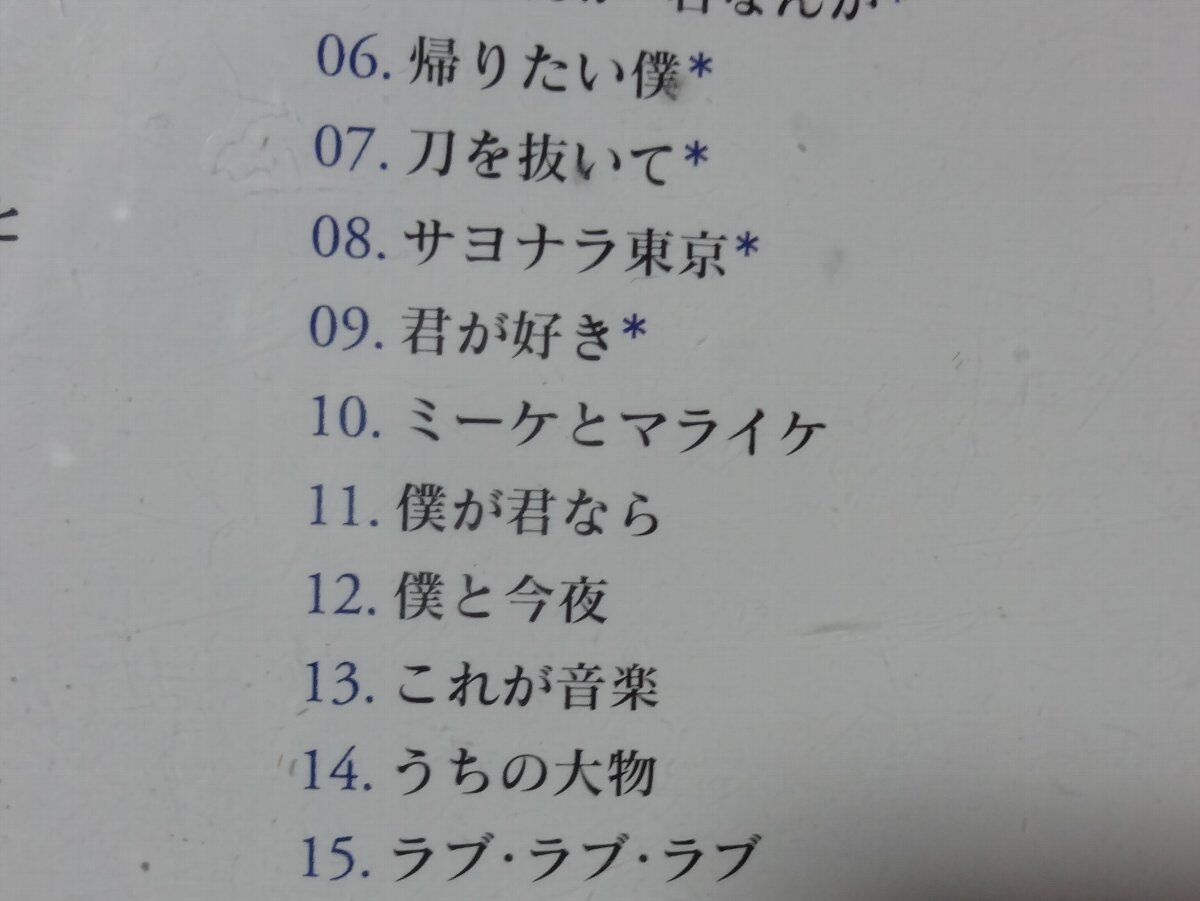 君なんか*
06. 帰りたい僕*
07. 刀を抜いて*
08. サヨナラ東京*
09. 君が好き*
10. ミーケとマライケ
11. 僕が君なら
12. 僕と今夜
13. これが音楽
14. うちの大物
15. ラブ・ラブ・ラブ